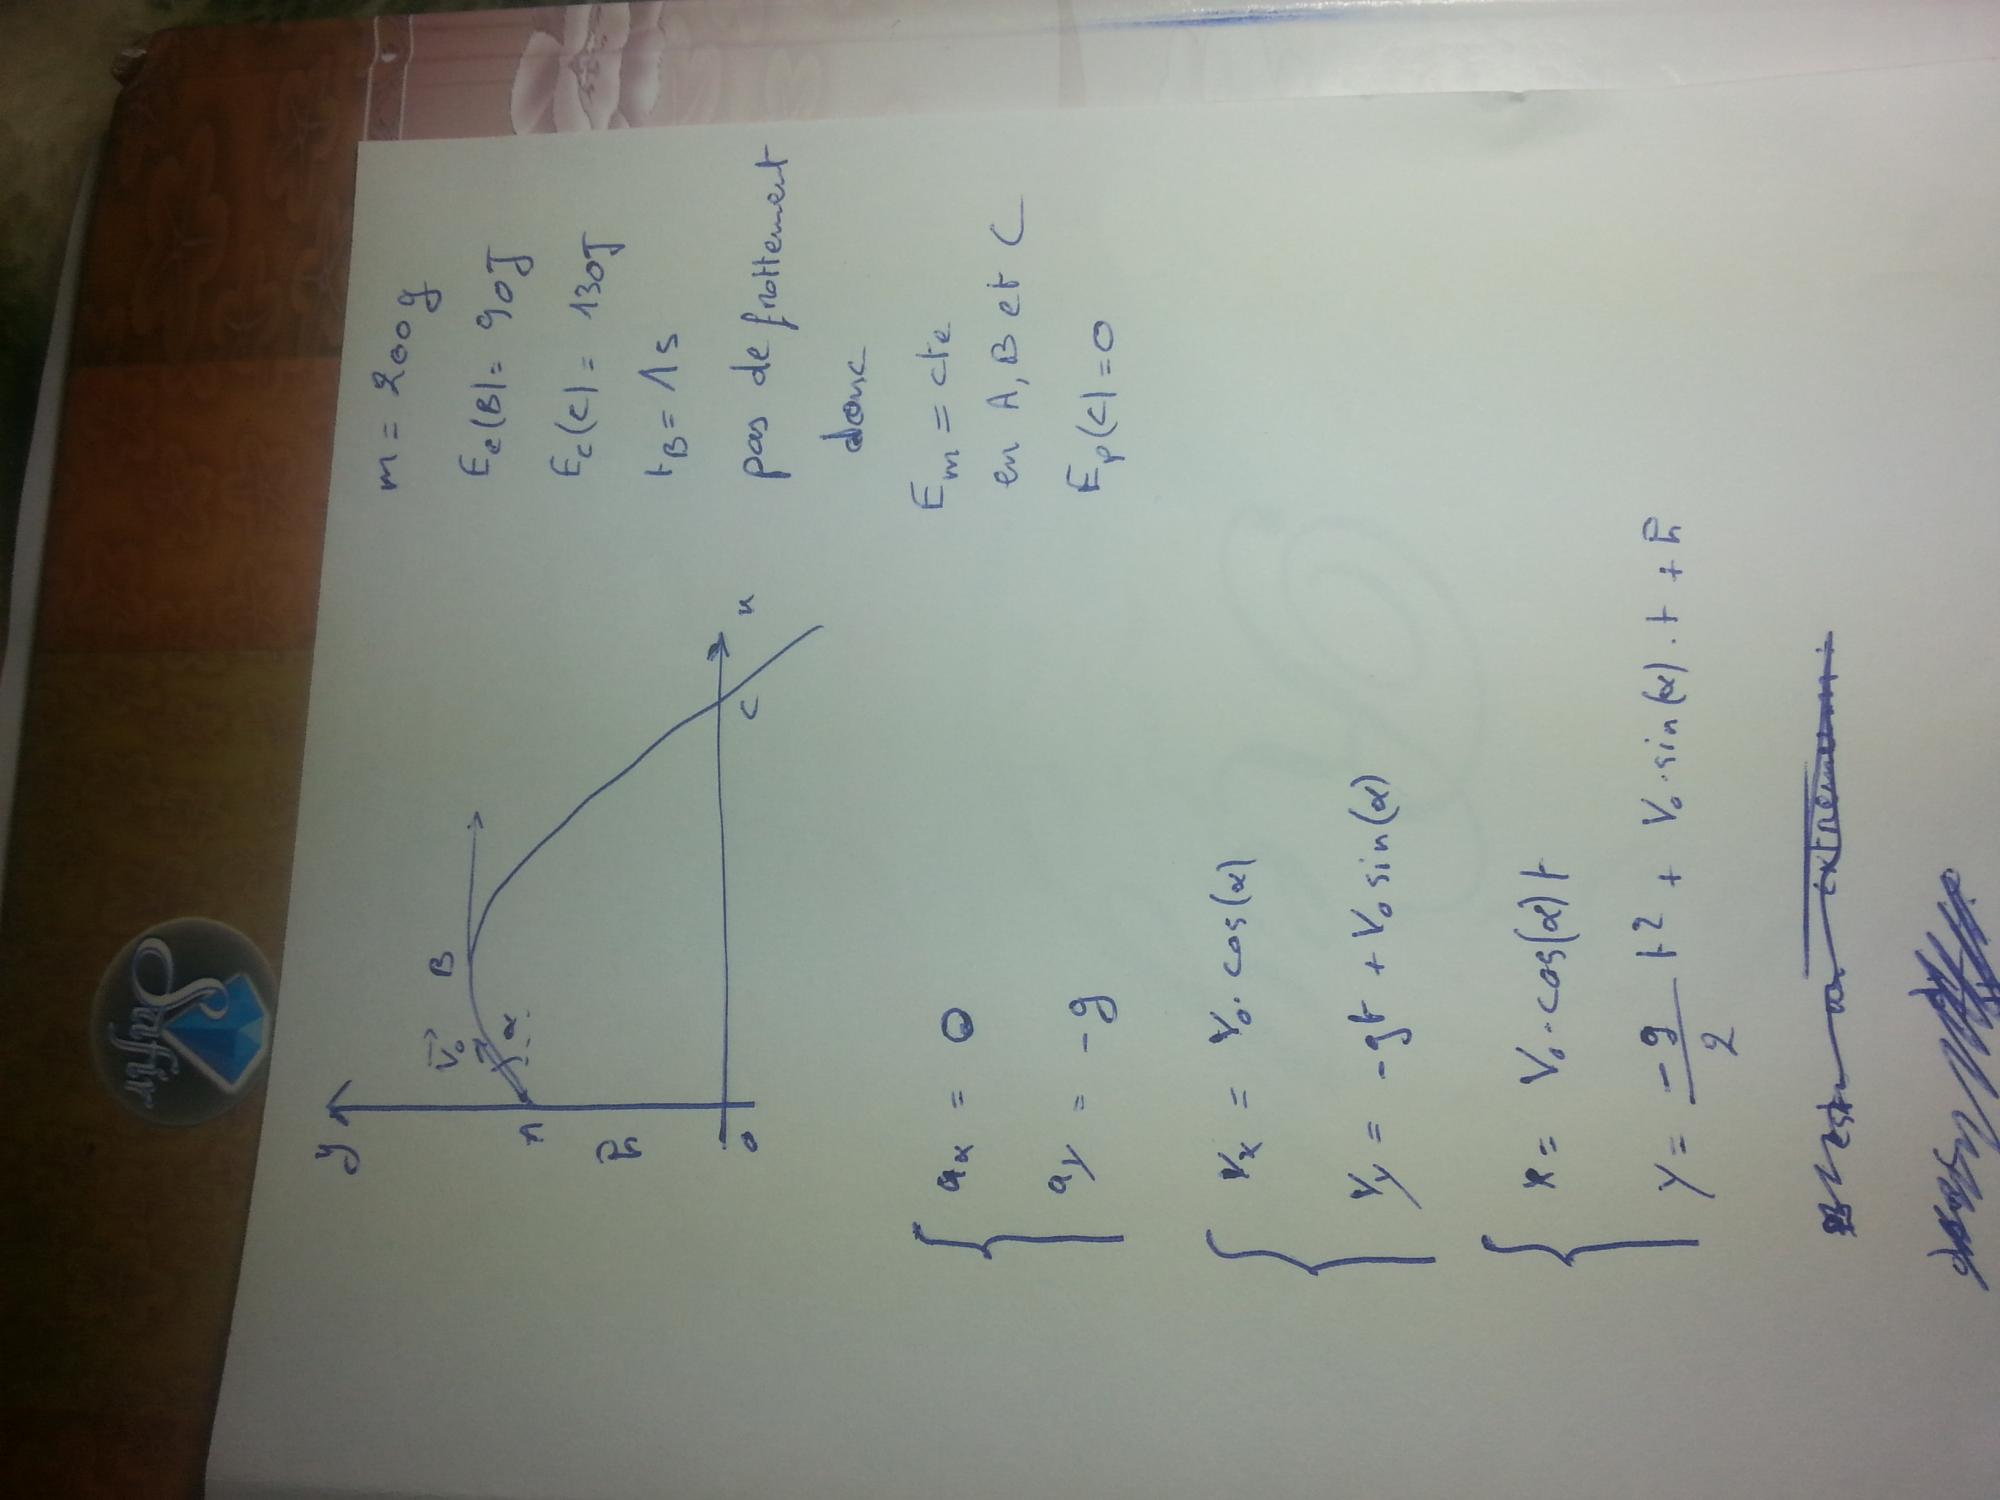 y
V₀
B
α
A
h
o
C
x
m = 200g
Ec(B) = 90J
Ec(C) = 130J
tB = 1s
pas de frottement
donc
Em = cte
en A, B et C
Ep(C) = 0
ax = 0
ay = -g
Vx = V₀.cos(α)
Vy = -gt + V₀ sin(α)
x = V₀.cos(α)t
y = -g/2 t² + V₀.sin(α).t + h